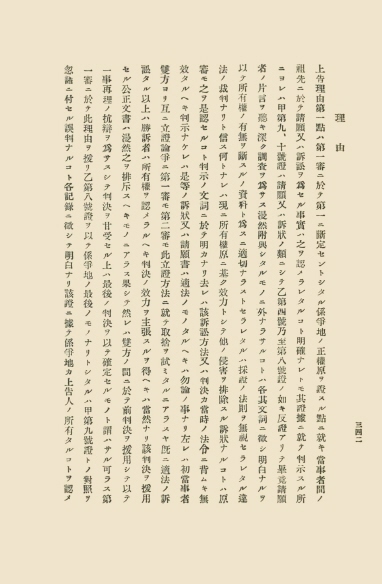 三四二
理由
上告理由第一點ハ第一審ニ於テ第一ニ議定セントシタル係爭地ノ正確原ヲ證スル點ニ就キ當事者間ノ
祖先ニ於テ請願又ハ訴訟ヲ爲セル事實ハ之ヲ認メラレタルコト明確ナレトモ其證據ニ就テ判示スル所
ニヨレハ甲第九、十號證ハ請願又ハ訴狀ノ類ニシテ乙第四號乃至第八號證ノ如キ反證アリテ畢竟請願
者ノ片言ヲ聽キ深ク調査ヲ爲サス漫然附與シタルモノニ外ナラサルコトハ各其文詞ニ徵シ明白ナルヲ
以テ所有權ノ有無ヲ斷スルノ資料ト爲スニ適切ナラストセラレタルハ採證ノ法則ヲ無視セラレタル違
法ノ裁判ナリト信ス何トナレハ現ニ所有權原ニ基ク效力トシテ他ノ侵害ヲ排除スル訴狀ナルコトハ原
審モ之ヲ是認セルコト判示ノ文詞ニ於テ明カナリ去レハ該訴訟方法又ハ判決カ當時ノ法令ニ背ムキ無
效タルヘキ判示ナケレハ是等ノ訴狀又ハ請願書ハ適法ノモノタルヘキハ勿論ノ事ナリ左レハ初當事者
雙方ヨリ互ニ立證論爭シ第一審モ第二審モ此立證方法ニ就テ取捨ヲ試ミタルニアラスヤ既ニ適法ノ訴
訟タル以上ハ勝訴者ハ所有權ヲ認メラルヘキ判決ノ效力ヲ主張スルヲ得ヘキハ當然ナリ該判決ヲ援用
セル公正文書ハ漫然之ヲ排斥スヘキモノニアラス果シテ然レハ雙方ノ間ニ於テ前判決ヲ援用シテ以テ
一事再理ノ抗辯ヲ爲サスシテ判決ヲ甘受セル上ハ最後ノ判決ヲ以テ確定セルモノト謂ハサル可ラス第
一審ニ於テ此理由ヲ援リ乙第八號證ヲ以テ係爭地ノ最後ノモノナリトシタルハ甲第九號證トノ對照ヲ
忽諸ニ付セル誤判ナルコト各記錄ニ徵シテ明白ナリ該證ニ據テ係爭地カ上告人ノ所有タルコトヲ認メ